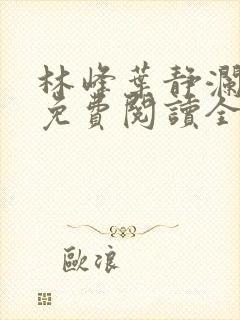 林峰葉靜瀾
免費閱讀全
歐浪